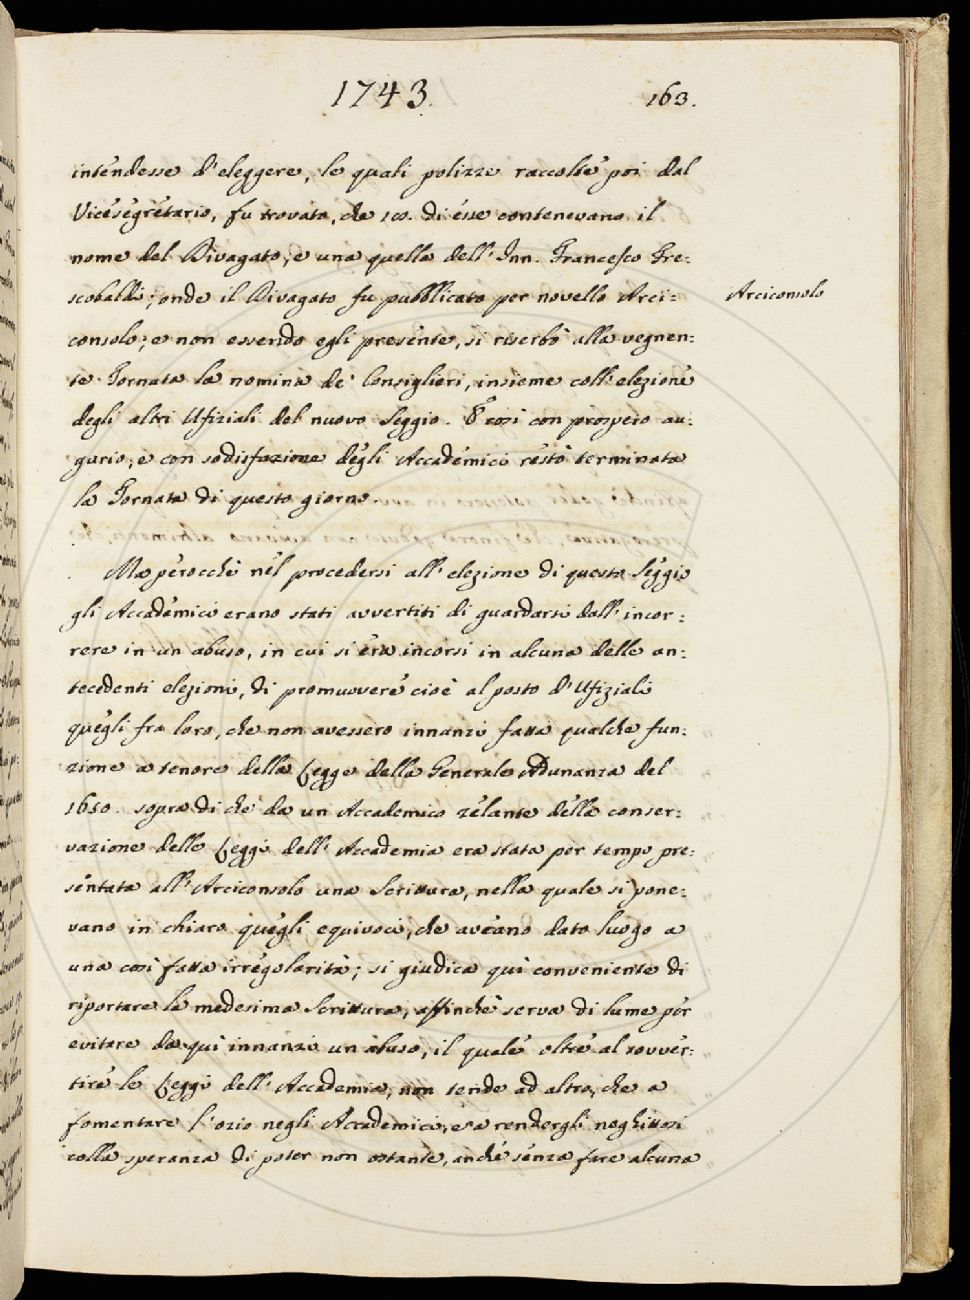 1743.
163.
intendesse d'eleggere, le quali polizze raccolte poi dal
Vicesegretario, fu trovato, che 10. di esse contenevano il
nome del Divagato, e una quella dell' Inn. Francesco Fre:
scobaldi; onde il Divagato fu pubblicato per novello Arci:
Arciconsolo
consolo; e non essendo egli presente, si riserbò alla vegnen:
te Tornata la nomina de' Consiglieri, insieme coll' elezione
degli altri Ufiziali del nuovo Seggio. E così con prospero au:
gurio, e con sodisfazione degli Accademici restò terminata
la Tornata di questo giorno.
Ma perocchè nel procedersi all' elezione di questo Seggio
gli Accademici erano stati avvertiti di guardarsi dall' incor:
rere in un abuso, in cui si era incorsi in alcuna delle an:
tecedenti elezioni, di promuovere cioè al posto d' Ufiziali
quegli fra loro, che non avessero innanzi fatta qualche fun:
zione a tenore della Legge della Generale Adunanza del
1650. sopra di che da un Accademico zelante della conser:
vazione delle Leggi dell' Accademia era stata per tempo pre:
sentata all' Arciconsolo una Scrittura, nella quale si pone:
vano in chiaro quegli equivoci, che aveano dato luogo a
una così fatta irregolarità; si giudica qui conveniente di
riportare la medesima Scrittura, affinchè serva di lume per
evitare da qui innanzi un abuso, il quale oltre al sovver:
tire le Leggi dell' Accademia, non tende ad altro, che a
fomentare l' ozio negli Accademici, e a rendergli neghittosi
colla speranza di poter non ostante, anche senza fare alcuna